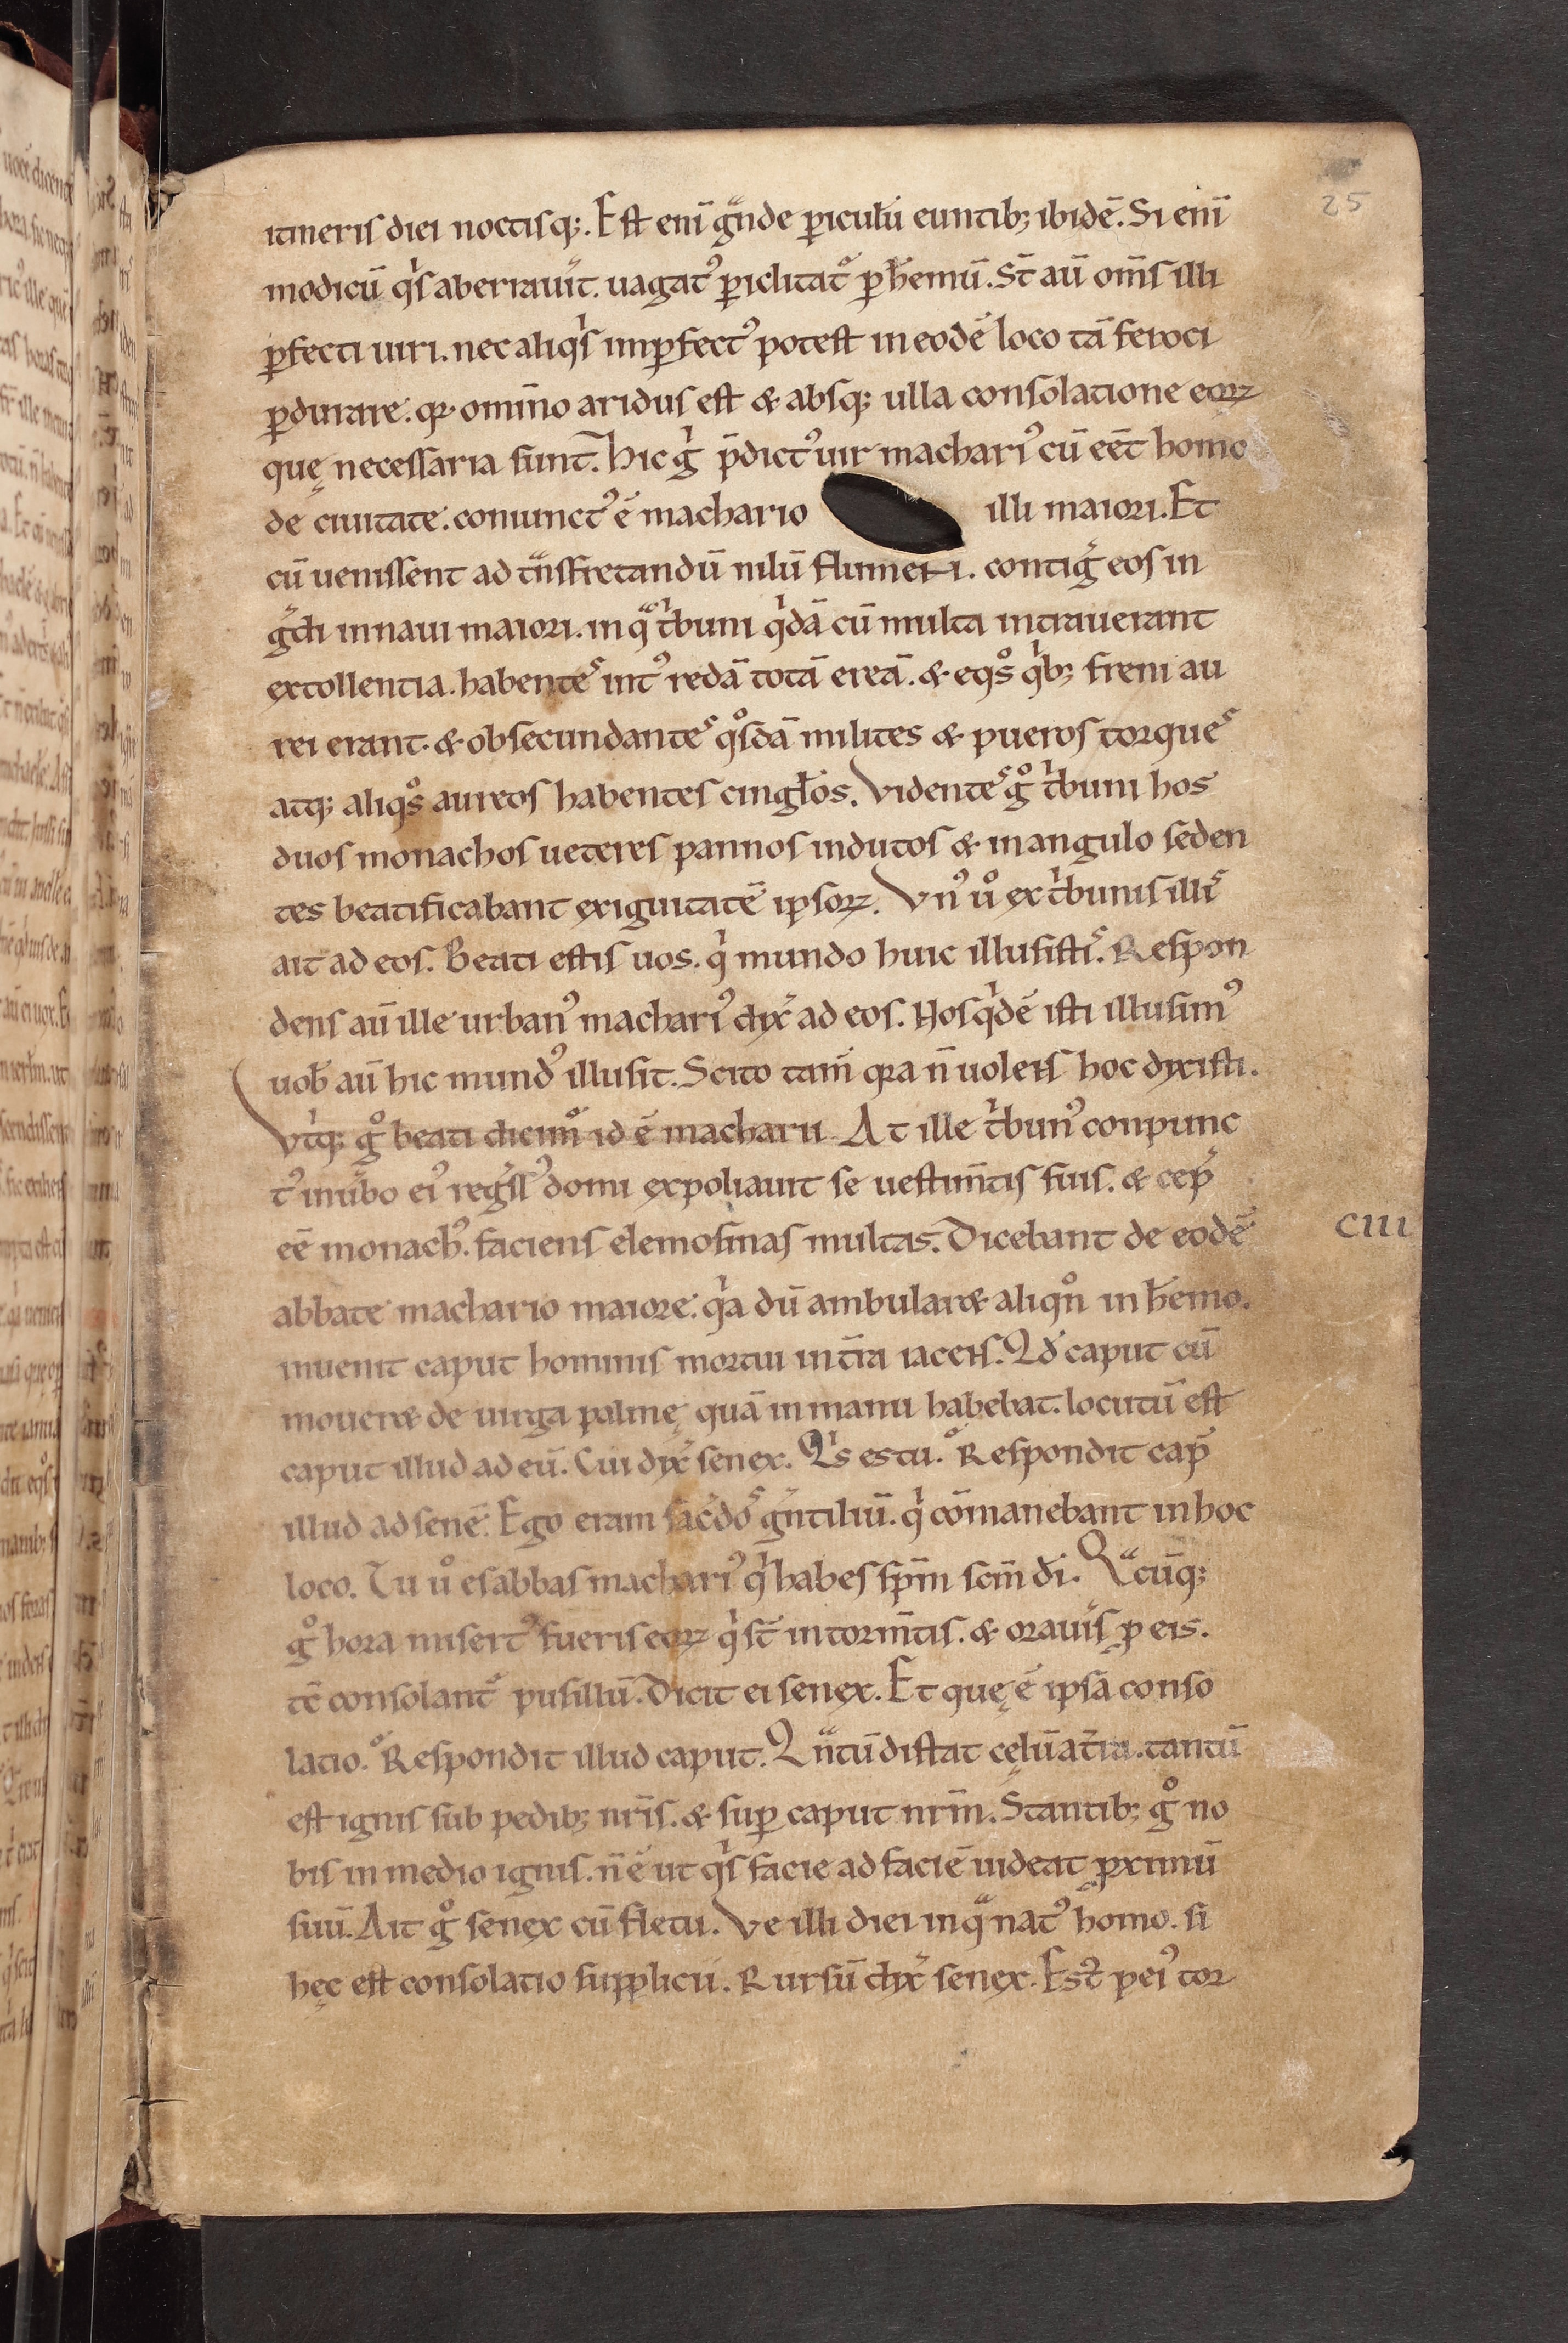 25
itineris diei noctisq;. Est eni͂ gͣnde ꝑiculu͂ euntib; ibide͂. Si eni͂
modicu͂ qͥs aberrauit͛. uagatꝰ ꝑiclitat᷑ ꝑ h͛emu͂. St͂ au͂ om͂s illi
ꝑfecti uiri. nec aliqͥs imꝑfectꝰ potest in eode͂ loco ta͂ feroci
ꝑdurare. qꝛ omi͂no aridus est & absq; ulla consolatione eoꝝ
quę necessaria sunt. Hic gͥ p͂dictꝰ uir machariꝰ cu͂ ee͂t homo
de ciuitate. coniunctꝰ e͂ machario illi maiori. Et
cu͂ uenissent ad tͣnsfretandu͂ nilu͂ flumen. contig͛ eos in
g͛di in naui maiori. in qͣ tͥbuni qͥda͂ cu͂ multa intrauerant
extollentia. habenteˢ intꝰ reda͂ tota͂ erea͂. & eqͦs qͥb; freni au
rei erant. & obsecundanteˢ qͦsda͂ milites & pueros torqueˢ
atq; aliqͦs aureos habentes cingl͂os. Videnteˢ gͦ tͥbuni hos
duos monachos ueteres pannos indutos & in angulo seden
tes beatificabant exiguitate͂ ipsoꝝ. Vnꝰ uͦ ex tͥbunis illiˢ
ait ad eos. Beati estis uos. qͥ mundo huic illusistiˢ. Respon
dens au͂ ille urbanꝰ machariꝰ dix͛ ad eos. Nos qͥde͂ isti illusimꝰ
uob͂ au͂ hic mundꝰ illusit. Scito tam͂ qꝛa n͂ uolens hoc dixisti.
Vtͥq; gͦ beati dicim᷑ id e͂ macharii. At ille tͥbunꝰ conpunc
tꝰ in u͛bo eiꝰ reg͛ssꝰ domi expoliauit se uestim͂tis suis. & cep͛
ee͂ monachꝰ. faciens elemosinas multas. Dicebant de eode͂
CIII
abbate machario maiore. qͥa du͂ ambular& aliqn͂ in h͛emo.
inuenit caput hominis mortui in t͛ra iacens. Qd͂ caput cu͂
mouer& de uirga palmę qua͂ in manu habebat. locutu͂ est
caput illud ad eu͂. Cui dix͛ senex. Qͥs es tu. Respondit cap᷑
illud ad sene͂. Ego eram sac͛doˢ g͛ntiliu͂. qͥ co͂manebant in hoc
loco. Tu uͦ es abbas machariꝰ qͥ habes sp͂m sc͂m di͂. Qͣcu͂q;
gͦ hora misertꝰ fueris eoꝝ qͥ st͂ in torm͂tis. & oraui͛s ꝓ eis.
tc͂ consolant᷑ pusillu͂. Dicit ei senex. Et quę e͂ ipsa͂ conso
latio. Respondit illud caput. Qͣntu͂ distat cęlu͂ a t͛ra. tantu͂
est ignis sub pedib; nr͂is. & suꝑ caput nr͂m. Stantib; gͦ no
bis in medio ignis. n͂ e͂ ut qͥs facie ad facie͂ uideat ꝓximu͂
suu͂. Ait gͦ senex cu͂ fletu. Ve illi diei in qͣ natꝰ homo. si
hęc est consolatio supplicii. Rursu͂ dix͛ senex. Est᷑ peiꝰ tor